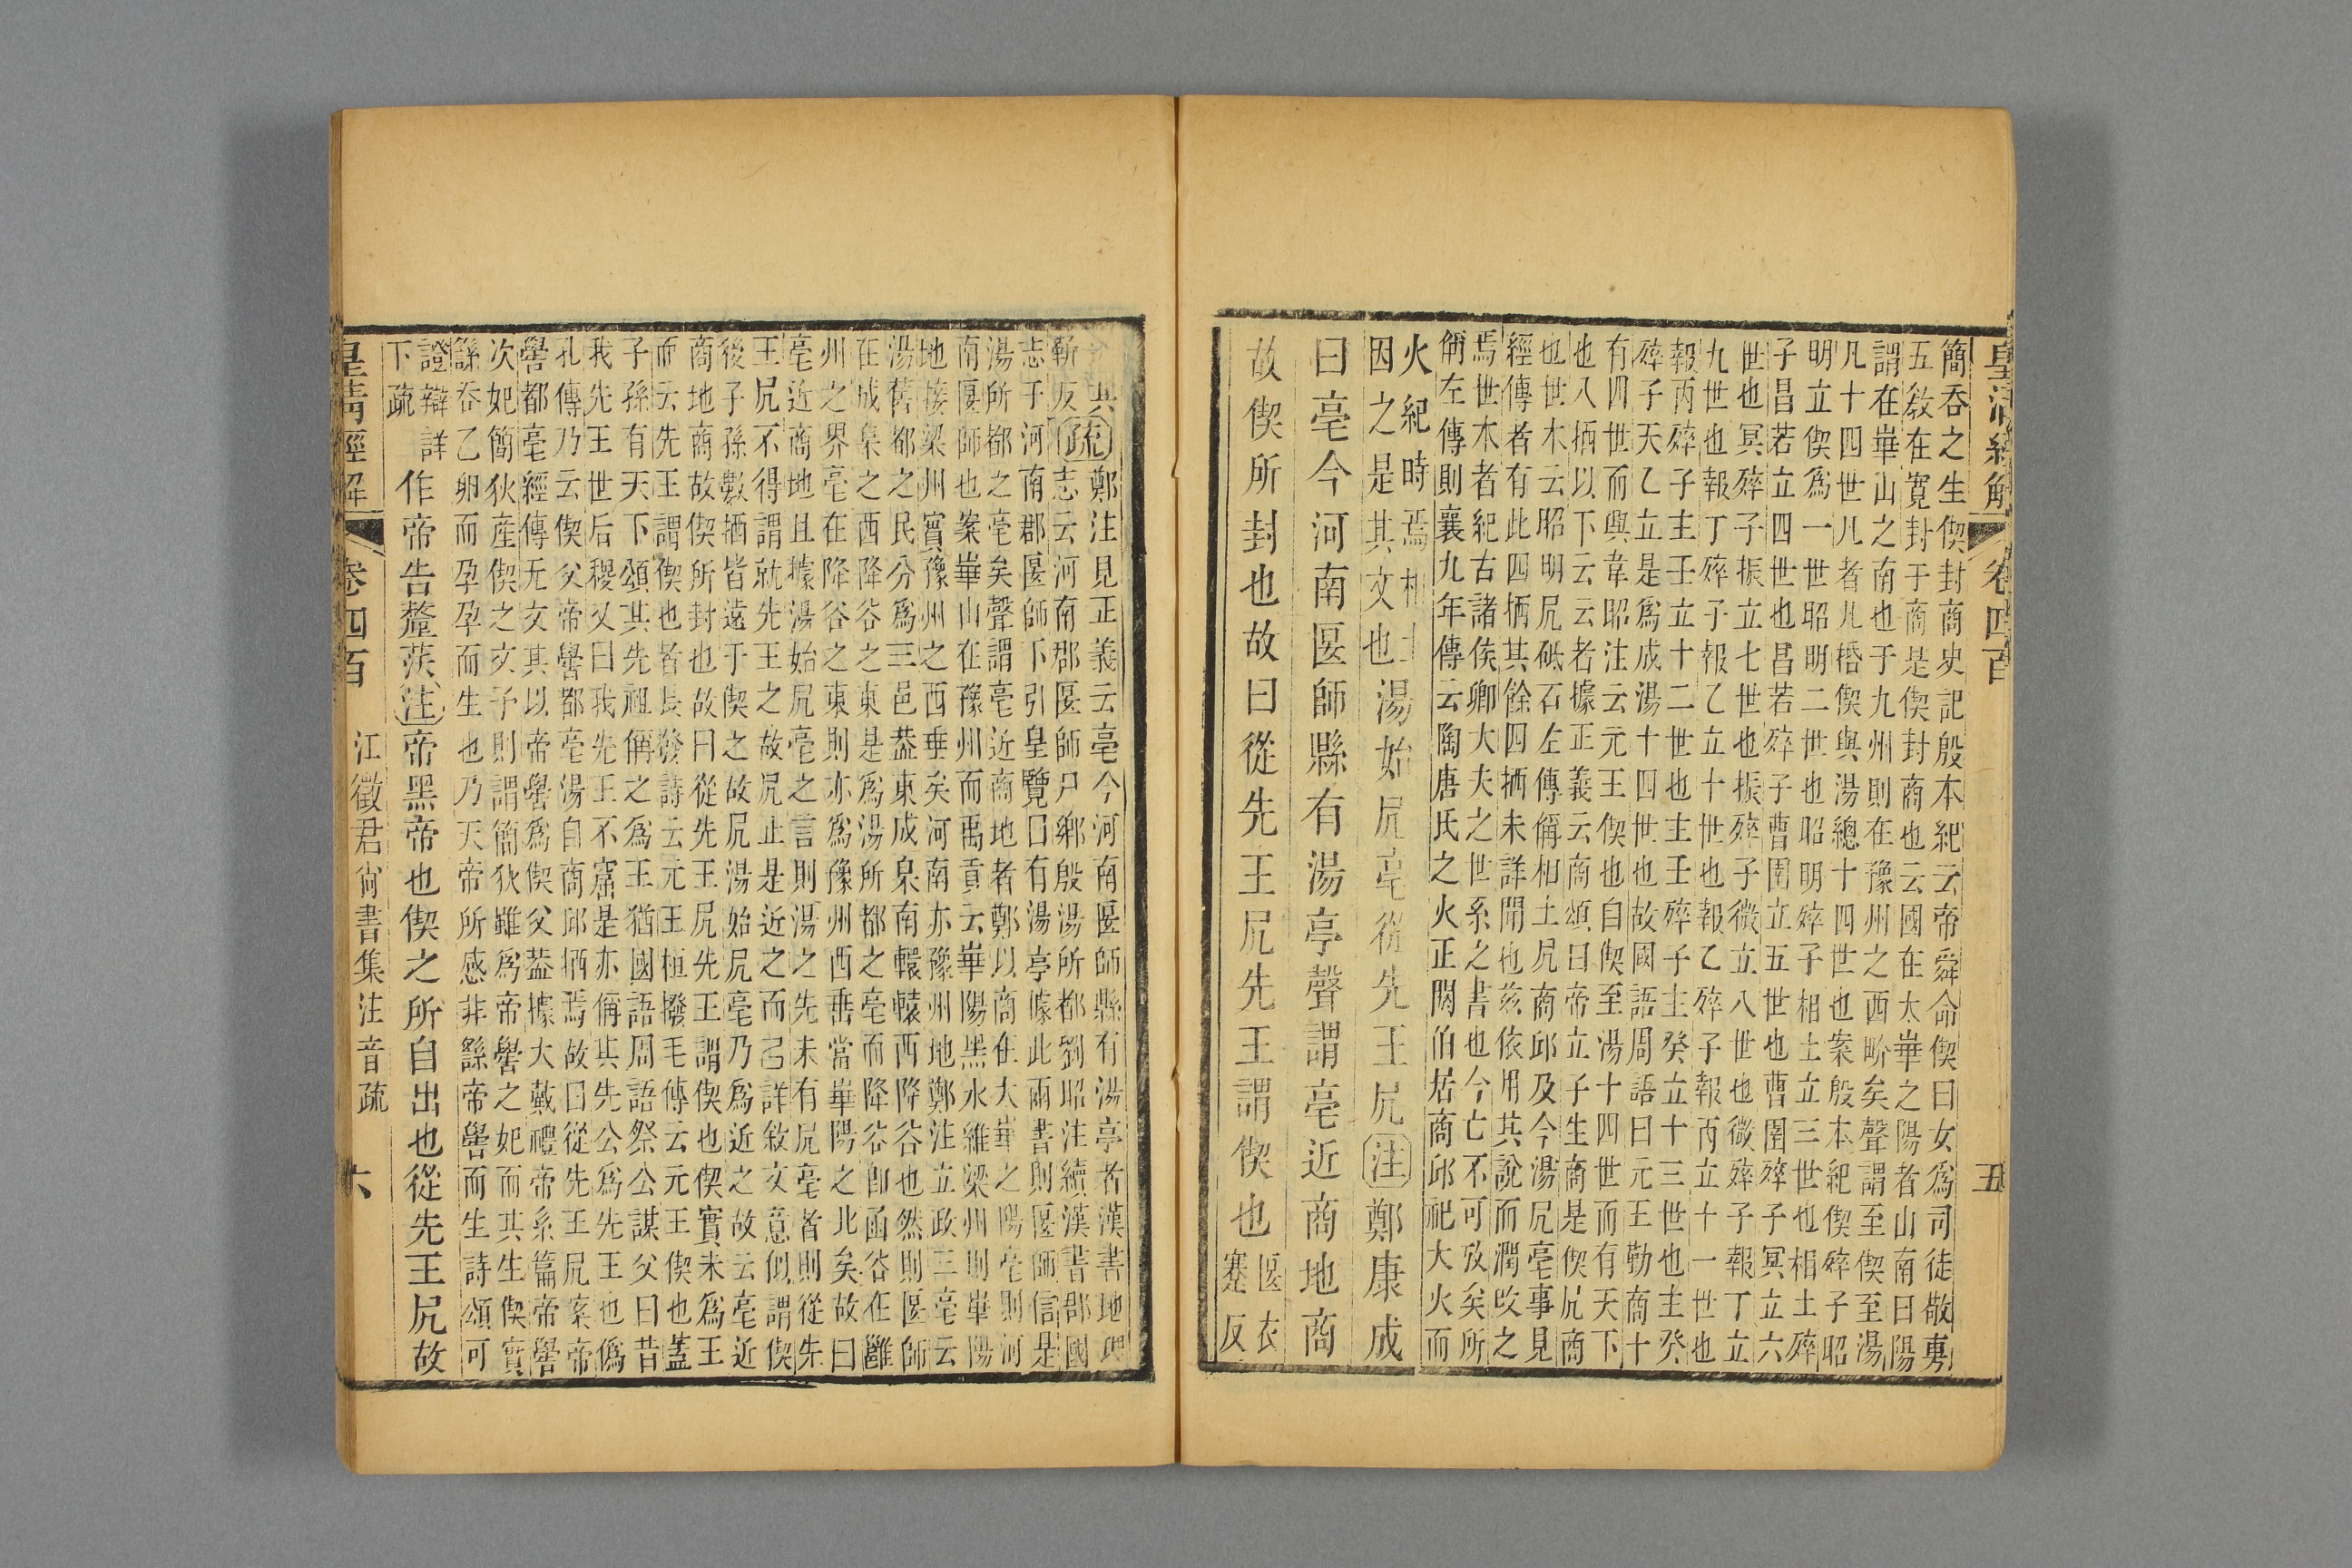 皇清經解 卷四百 五
簡吞之生偰封商史記殷本紀云帝舜命偰曰女爲司徒敬旉
五敎在寬封于商是偰封商也云國在太華之陽者山南曰陽
謂在華山之南也于九州則在豫州之西畍矣聲謂至偰至湯
凡十四世凡者凡䛒偰與湯總十四世也案殷本紀偰䘚子昭
明立偰爲一世昭明二世也昭明䘚子相土立三世也相土䘚
子昌若立四世也昌若䘚子曹圉立五世也曹圉䘚子冥立六
世也冥䘚子振立七世也振䘚子微立八世也微䘚子報丁立
九世也報丁䘚子報乙立十世也報乙䘚子報丙立十一世也
報丙䘚子主壬立十二世也主壬䘚子主癸立十三世也主癸
䘚子天乙立是爲成湯十四世也故國語周語曰元王勤商十
有四世而與韋昭注云元王偰也自偰至湯十四世而有天下
也八䙳以下云云者據正義云商頌曰帝立子生商是偰凥商
也世本云昭明凥砥石左傳偁相土凥商邱及今湯凥亳事見
經傳者有此四䙳其餘四䙳未詳聞也兹依用其說而潤改之
焉世本者紀古諸侯卿大夫之世系之書也今亡不可攷矣所
偁左傳則襄九年傳云陶唐氏之火正閼伯居商邱祀大火而
火紀時焉相土
因之是其文也湯始凥亳從先王凥注鄭康成
曰亳今河南匽師縣有湯亭聲謂亳近商地商
故偰所封也故曰從先王凥先王謂偰也匽衣
蹇反
靳反疏鄭注見正義云亳今河南匽師縣有湯亭者漢書地理
志云河南郡匽師尸鄉殷湯所都劉昭注續漢書郡國
志于河南郡匽師下引皇覽曰有湯亭據此兩書則匽師信是
湯所都之亳矣聲謂亳近商地者鄭以商在大華之陽亳則河
南匽師也案華山在豫州而禹貢云華陽黑水維梁州則華陽
地接梁州實豫州之西垂矣河南亦豫州地鄭注立政三亳云
湯舊都之民分爲三邑葢東成皋南轘轅西降谷也然則匽師
在成皋之西降谷之東是爲湯所都之亳而降谷卽函谷在雝
州之界亳在降谷之東則亦爲豫州西垂當華陽之北矣故曰
亳近商地且據湯始凥亳之言則湯之先未有凥亳者則從先
王凥不得謂就先王之故凥止是近之而己詳敘文意似謂偰
後子孫數䙳皆遠于偰之故凥湯始凥亳乃爲近之故云亳近
商地商故偰所封也故曰從先王凥先王謂偰也偰實未爲王
而云先王謂偰也者長發詩云元王桓撥毛傳云元王偰也蓋
子孫有天下頌其先祖偁之爲王猶國語周語祭公謀父曰昔
我先王世后稷又曰我先王不窋是亦偁其先公爲先王也僞
孔傳乃云偰父帝嚳都亳湯自商邱䙳焉故曰從先王凥案帝
嚳都亳經傳无文其以帝嚳爲偰父葢據大戴禮帝系篇帝嚳
次妃簡狄產偰之文予則謂簡狄雖爲帝嚳之妃而其生偰實
繇吞乙卵而孕孕而生也乃天帝所感非繇帝嚳而生詩頌可
證辯詳
下疏作帝告釐茠注帝黑帝也偰之所自出也從先王凥故
皇清經解 卷四百 江徵君尙書集注音疏 六